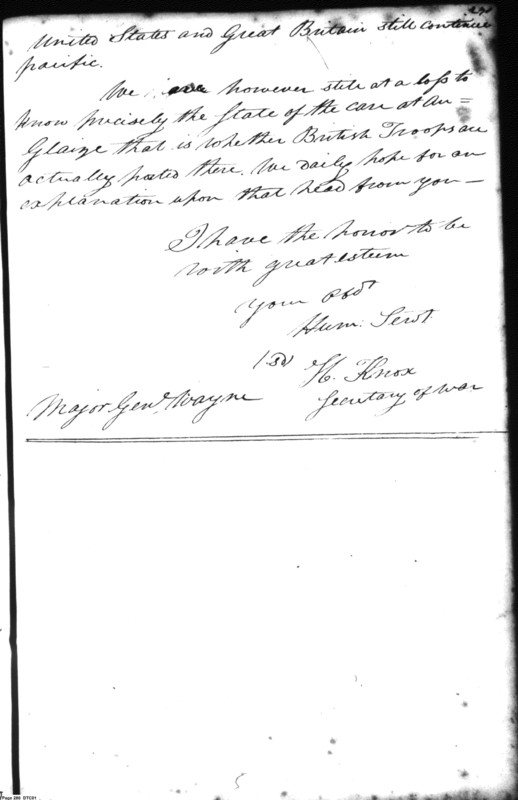 United States and Great Britain still continue
pacific.
We are however still at a loss to
know precisely the State of the case at Au=
Glaize that is whether British Troops are
actually posted there. We daily hope for an
explanation upon that head from you —
I have the honor to be
with great esteem
your Obdt
Hum: Servt
H. Knox
Secretary of War
Major Genl Wayne
Page 286 DTC01